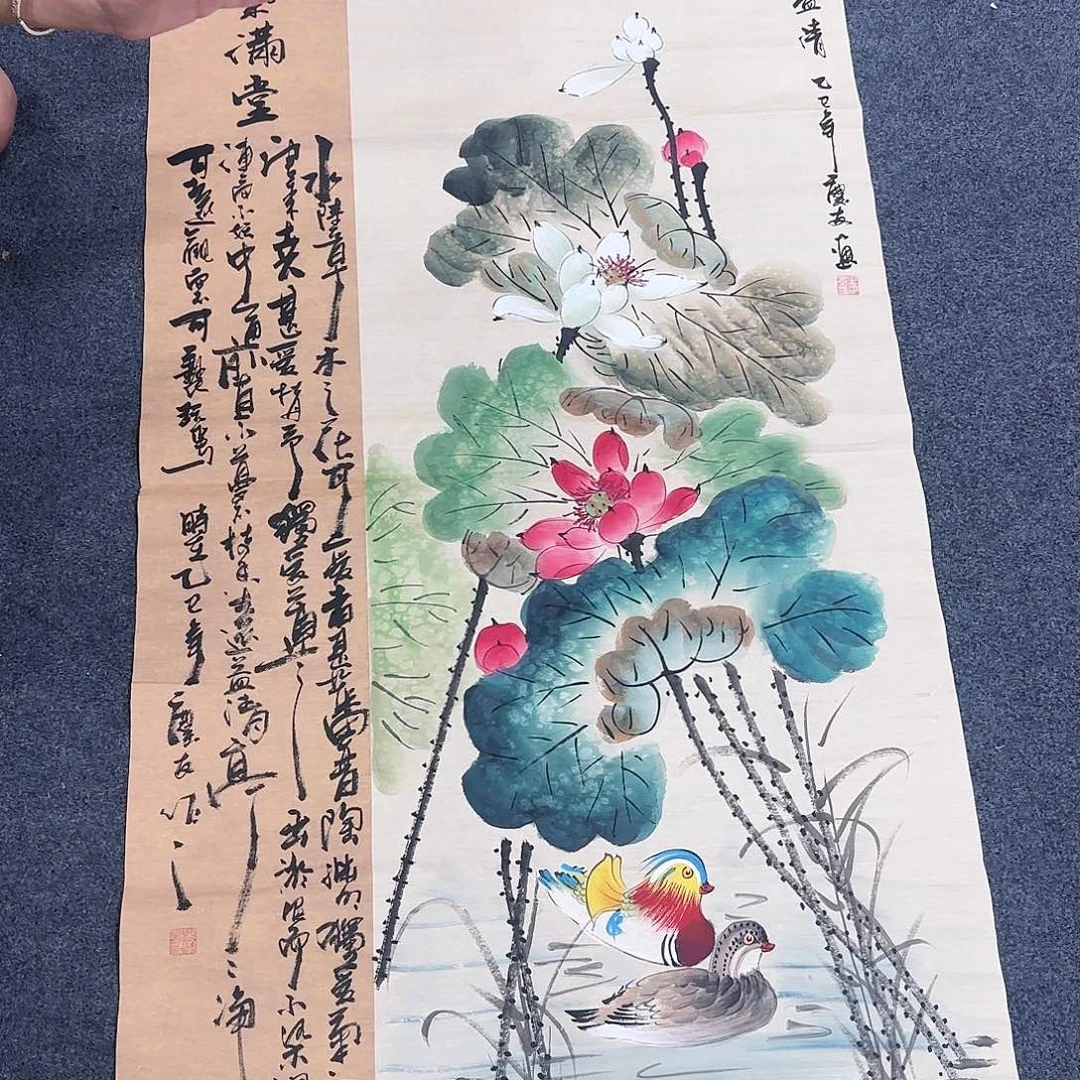 益清
乙巳年
慶友畫
滿堂
水陸草木之花可愛者甚蕃晋陶淵明獨愛菊
甚愛牡丹予獨愛蓮之出淤泥而不染濯
蓮而不妖中通外直不蔓不枝香遠益清亭亭淨
可遠觀而不可褻玩焉
時在乙巳年慶友作